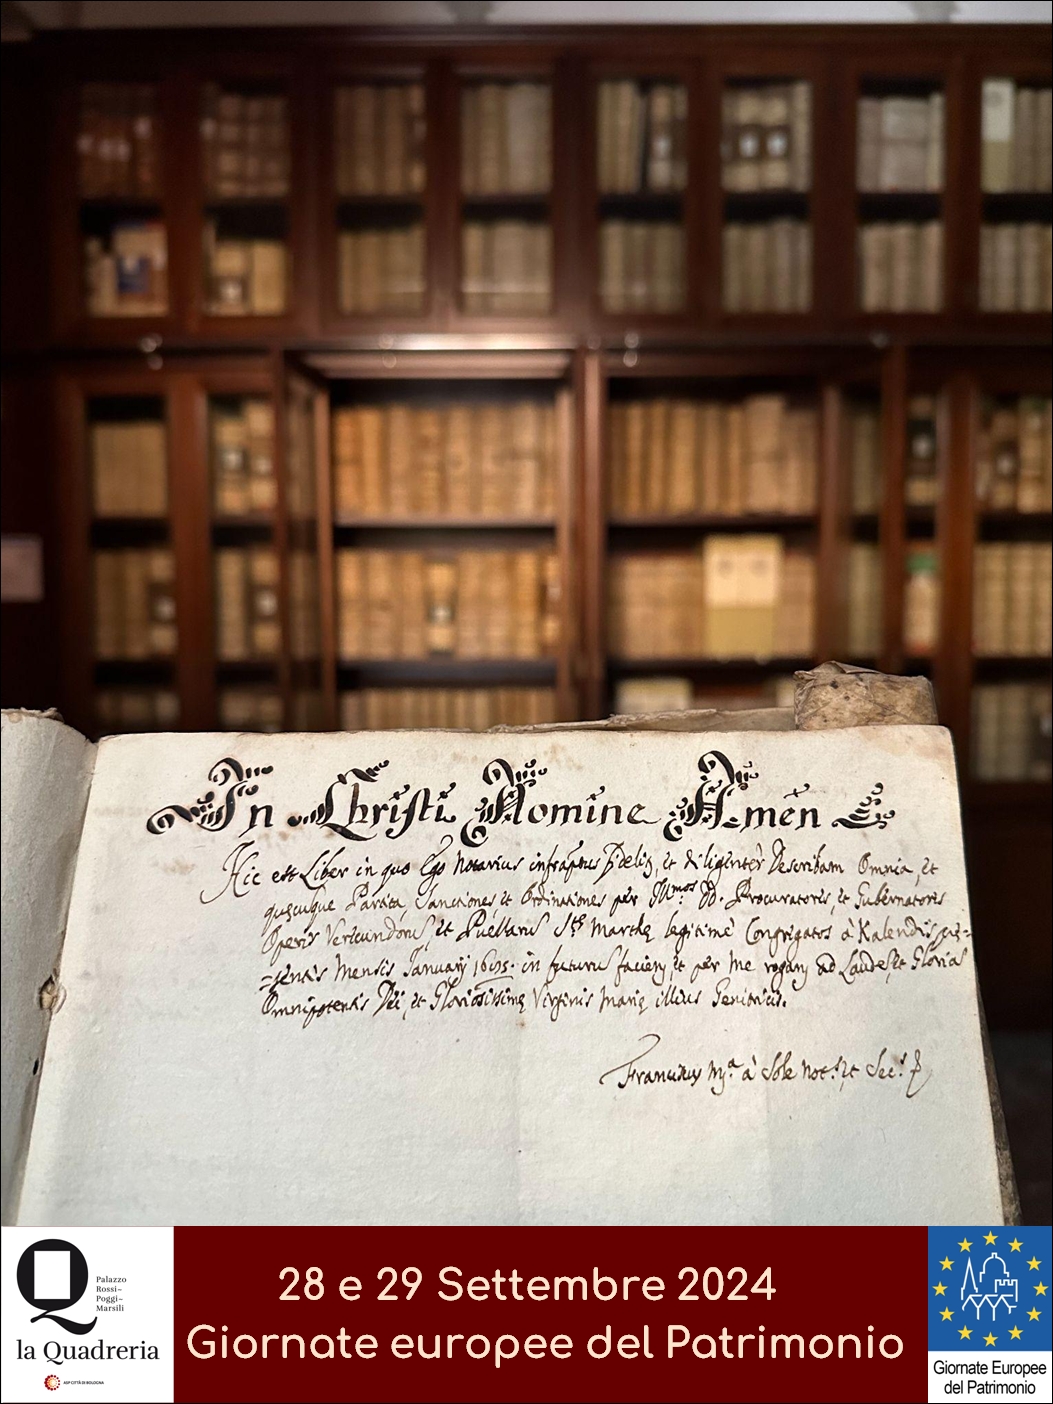 In Christi Nomine Amen
Hic est Liber in quo Ego Notarius infra͞ptus fidelit, et diligenter Describam Omnia, et
quęcunque Partita, Sanctiones, et Ordinationes per Ill.mos DD. Procuratores, et Gubernatores
Operis Verecundorũ, et Puellarũ S.tę Marthę legitimè Congregatos à Kalendis prę=
=sentis Mensis Januarij in futurũ et per me ad Laudẽ, et Gloriã
Omnipotentis Dei, et Gloriosissimę Virginis Marię illius Genitricis.
M.a à Sole Not.s et Sec.s
Palazzo
Rossi–
Poggi–
Marsili
la Quadreria
ASP CITTÀ DI BOLOGNA
28 e 29 Settembre 2024
Giornate europee del Patrimonio
Giornate Europee
del Patrimonio